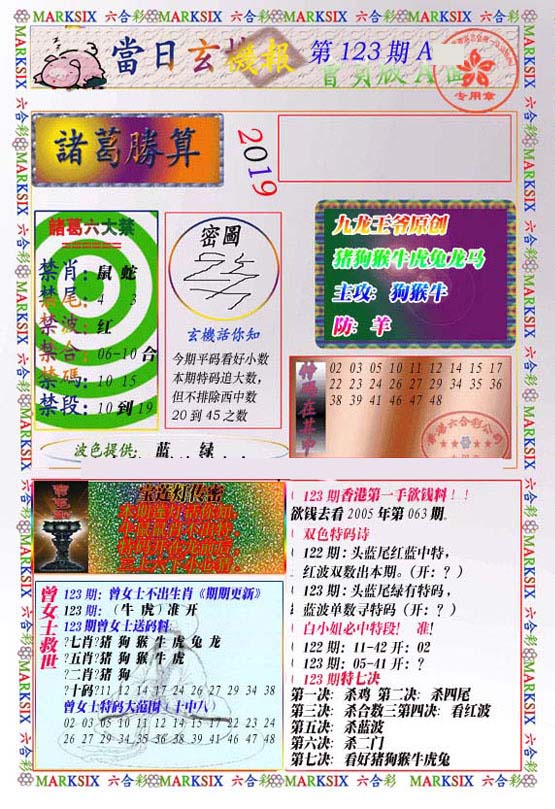 MARKSIX 六合彩 MARKSIX 六合彩 MARKSIX 六合彩 MARKSIX 六合彩 MARKSIX
當日玄機報 第123期A
专用章
諸葛勝算
2019
諸葛六大禁
禁肖：鼠 蛇
禁尾：4 3
禁波：红
禁合：06-10合
禁碼：10 15
禁段：10到19
密圖
玄機话你知
今期平码看好小数
本期特码追大数，
但不排除西中数
20到45之数
九龙王爷原创
猪狗猴牛虎兔龙马
主攻：狗猴牛
防：羊
特码在其中
02 03 05 10 11 12 14 15 17
22 23 24 26 27 29 34 35 36
38 39 41 46 47 48
波色提供：蓝．．绿．．
宝莲灯传密
曾女士救世
123期：曾女士不出生肖《期期更新》
123期：（牛 虎）准 开
123期曾女士送码料
?七肖?猪 狗 猴 牛 虎 兔 龙
?五肖?猪 狗 猴 牛 虎
?二肖?猪 狗
?十码?11 12 14 17 24 26 27 29 34 38
曾女士特码大范围（十中八）
02 03 05 10 11 12 14 15 17 22 23 24
26 27 29 34 35 36 38 39 41 46 47 48
123期香港第一手欲钱料！！
欲钱去看2005年第063期。
双色特码诗
122期：头蓝尾红蓝中特，
红波双数出本期。（开：？）
123期：头蓝尾绿有特码，
蓝波单数寻特码（开：？）
白小姐必中特段！ 准！
122期：11-42开：02
123期：05-41开：？
123期特七决
第一决：杀鸡 第二决：杀四尾
第三决：杀合数三第四决：看红波
第五决：杀蓝波
第六决：杀二门
第七决：看好猪狗猴牛虎兔
MARKSIX 六合彩 MARKSIX 六合彩 MARKSIX 六合彩 MARKSIX 六合彩 MARKSIX